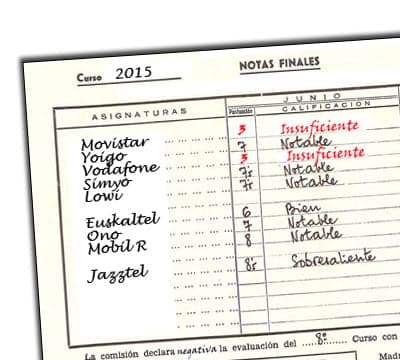 Curso 2015
NOTAS FINALES
ASIGNATURAS
Puntuación
JUNIO
CALIFICACIÓN
Movistar ... ... ... ... 3 Insuficiente
Yoigo ... ... ... ... 7 Notable
Vodafone ... ... ... 3 Insuficiente
Simyo ... ... ... ... 7'5 Notable
Lowi ... ... ... ... 7'5 Notable
Euskaltel ... ... ... 6 Bien
Ono ... ... ... ... 7 Notable
Mobil R ... ... ... 8 Notable
Jazztel ... ... ... 8'5 Sobresaliente
La comisión declara negativa la evaluación del .....8º...... Curso con
Madr